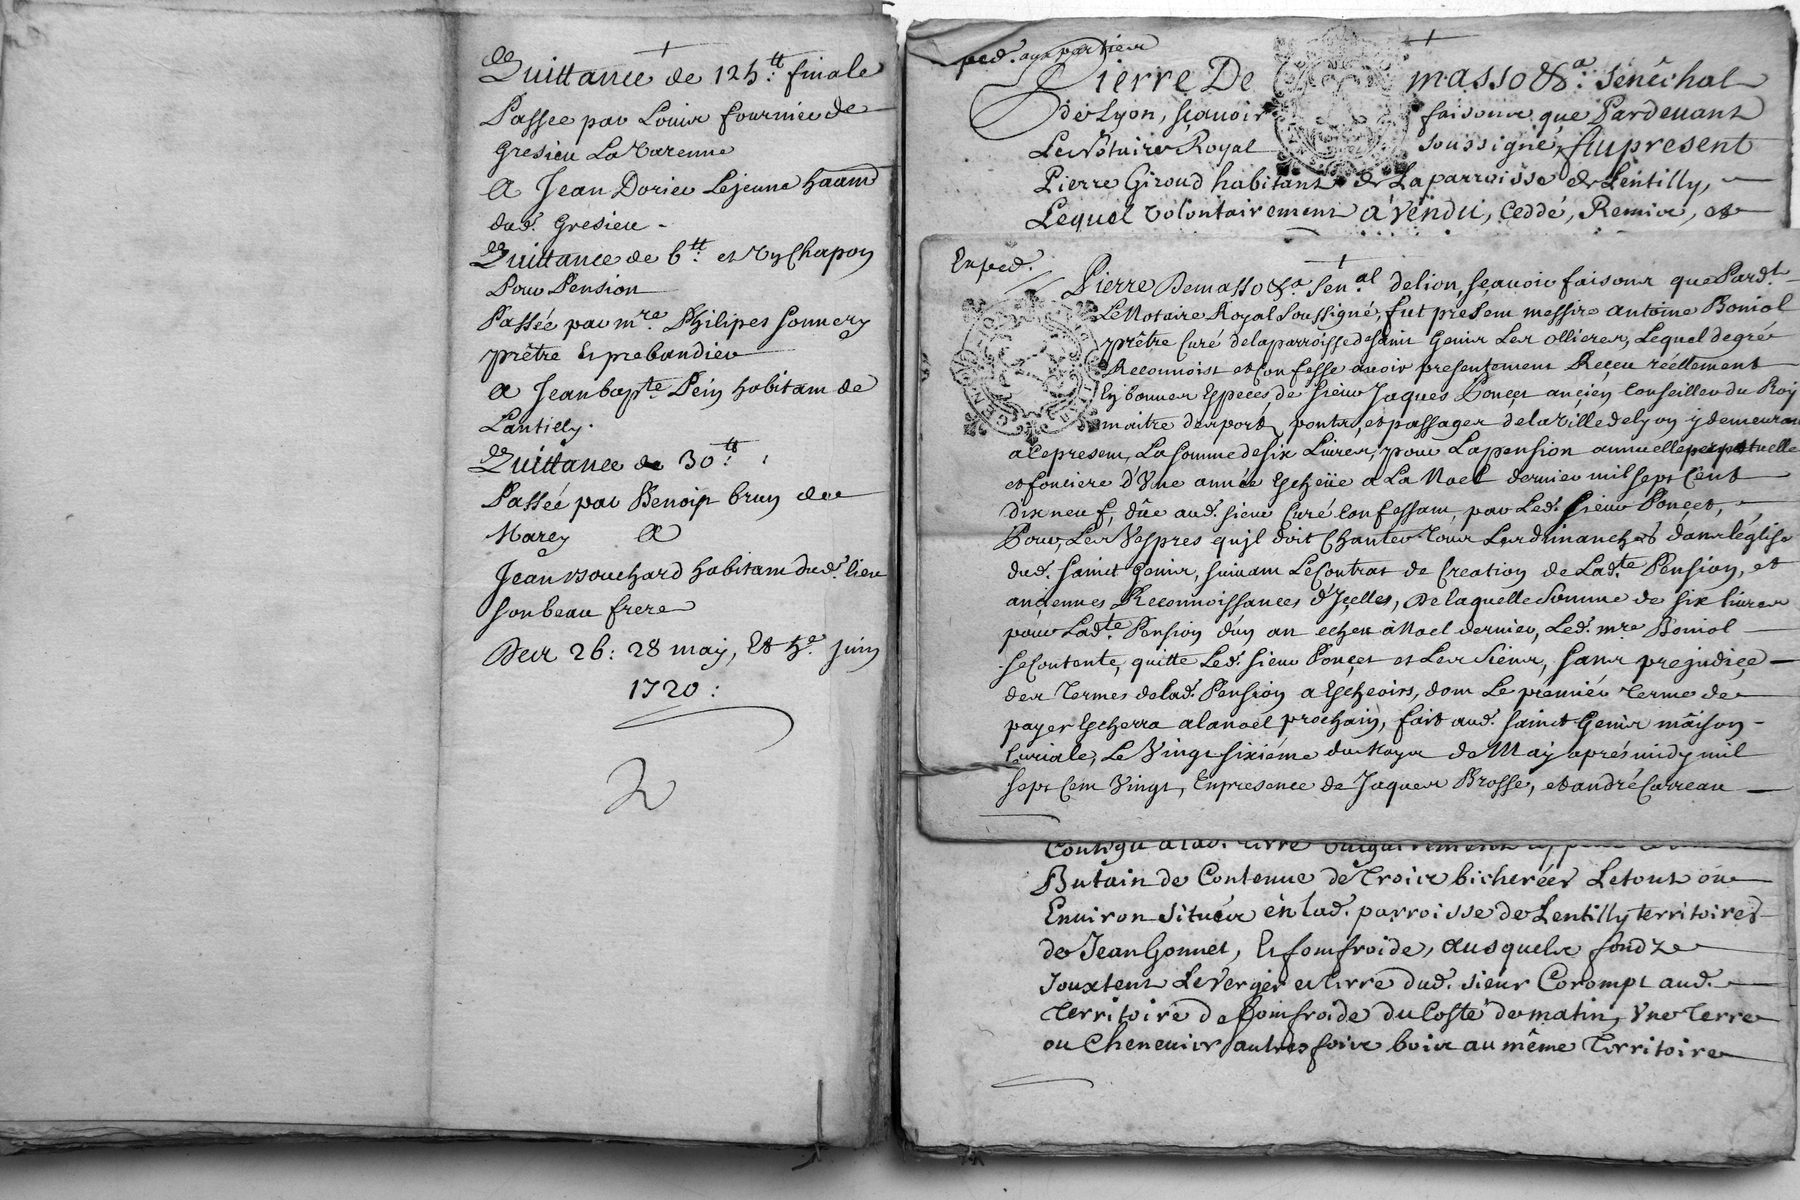 +
Quittance de 125:tt finale
Passée par Louis fournier de
Gresieu La Varenne
A Jean Dorier Lejeune haant
dud. Gresieu -
Quittance de 6:tt et Vn Chapon
Pour Pension
Passée par mre Philipes Sonnery
prêtre Et prebandier
A Jean bapte Péin habitant de
Lantilly.
Quittance de 30:tt
Passée par Benoist brun de
Marcy A
Jean Bouchard habitant dud. lieu
son beau frere
Des 26: 28 may, Et 5e juin
1720:
2
+
exped. aux parties
Pierre De masso &a. Sénéchal
de Lyon, sçavoir faisons que Pardevant
Le Notaire Royal soussigné, fut present
Pierre Giroud habitant de La parroisse de Lentilly,
Lequel volontairement à vendu, Ceddé, Remis, et
+
Exped.
Pierre Demasso &a Sen.al delion, scavoir faisons que Pardt.
Le Notaire Royal Soussigné, fut present messire antoine Boniol
prêtre Curé dela parroisse de saint Genis Les ollieres, Lequel de gré
Reconnoist et Confesse avoir presentement Receu réellement
En bonnes Especes de sieur Jaques Ponçet ancien Conseiller du Roy
maitre des ports, ponts, et passages de la Ville de lyon y demeurant
a Cepresent, La somme de six Livres, pour La pension annuelle perpetuelle
et fonciere d'Vne année Escheüe a La Noel dernier mil sept Cent
dix neuf, düe aud. sieur Curé Confessant, par Led. sieur Ponçet,
Pour, Les Vespres qu'jl doit Chanter tous Les dimanches dans léglise
dud. sainct Genis, suivant Le Contrat de Creation de Ladte Pension, et
anciennes Reconnoissances d'Jçelles, De laquelle Somme de six livres
pour Ladte Pension d'un an echeu à Noel dernier, Led. mre Boniol
se Contente, quitte Led. sieur Ponçet et Les siens, sans prejudiçe
des Termes de lad. Pension a Escheoirs, dont Le premier terme de
payer Escherra a la noel prochain, fait aud. sainct Genis maison
Curiale, Le Vingt sixiéme du Moys de May aprés midy mil
sept Cent Vingt, En presence de Jaques Brosse, et andré Carreau
Contigu a lad. terre
Butain de Contenue de Trois bicherées Le tout ou
Environ situés en lad. parroisse de Lentilly territoires
de Jean Gonnet, Et fonfroide, ausquels fondz
Jouxtent Le Verger et terre dud. sieur Corompt aud.
Territoire de fonfroide du Costé de matin, Vne Terre
ou Chenevier autres fois bois au même Territoire